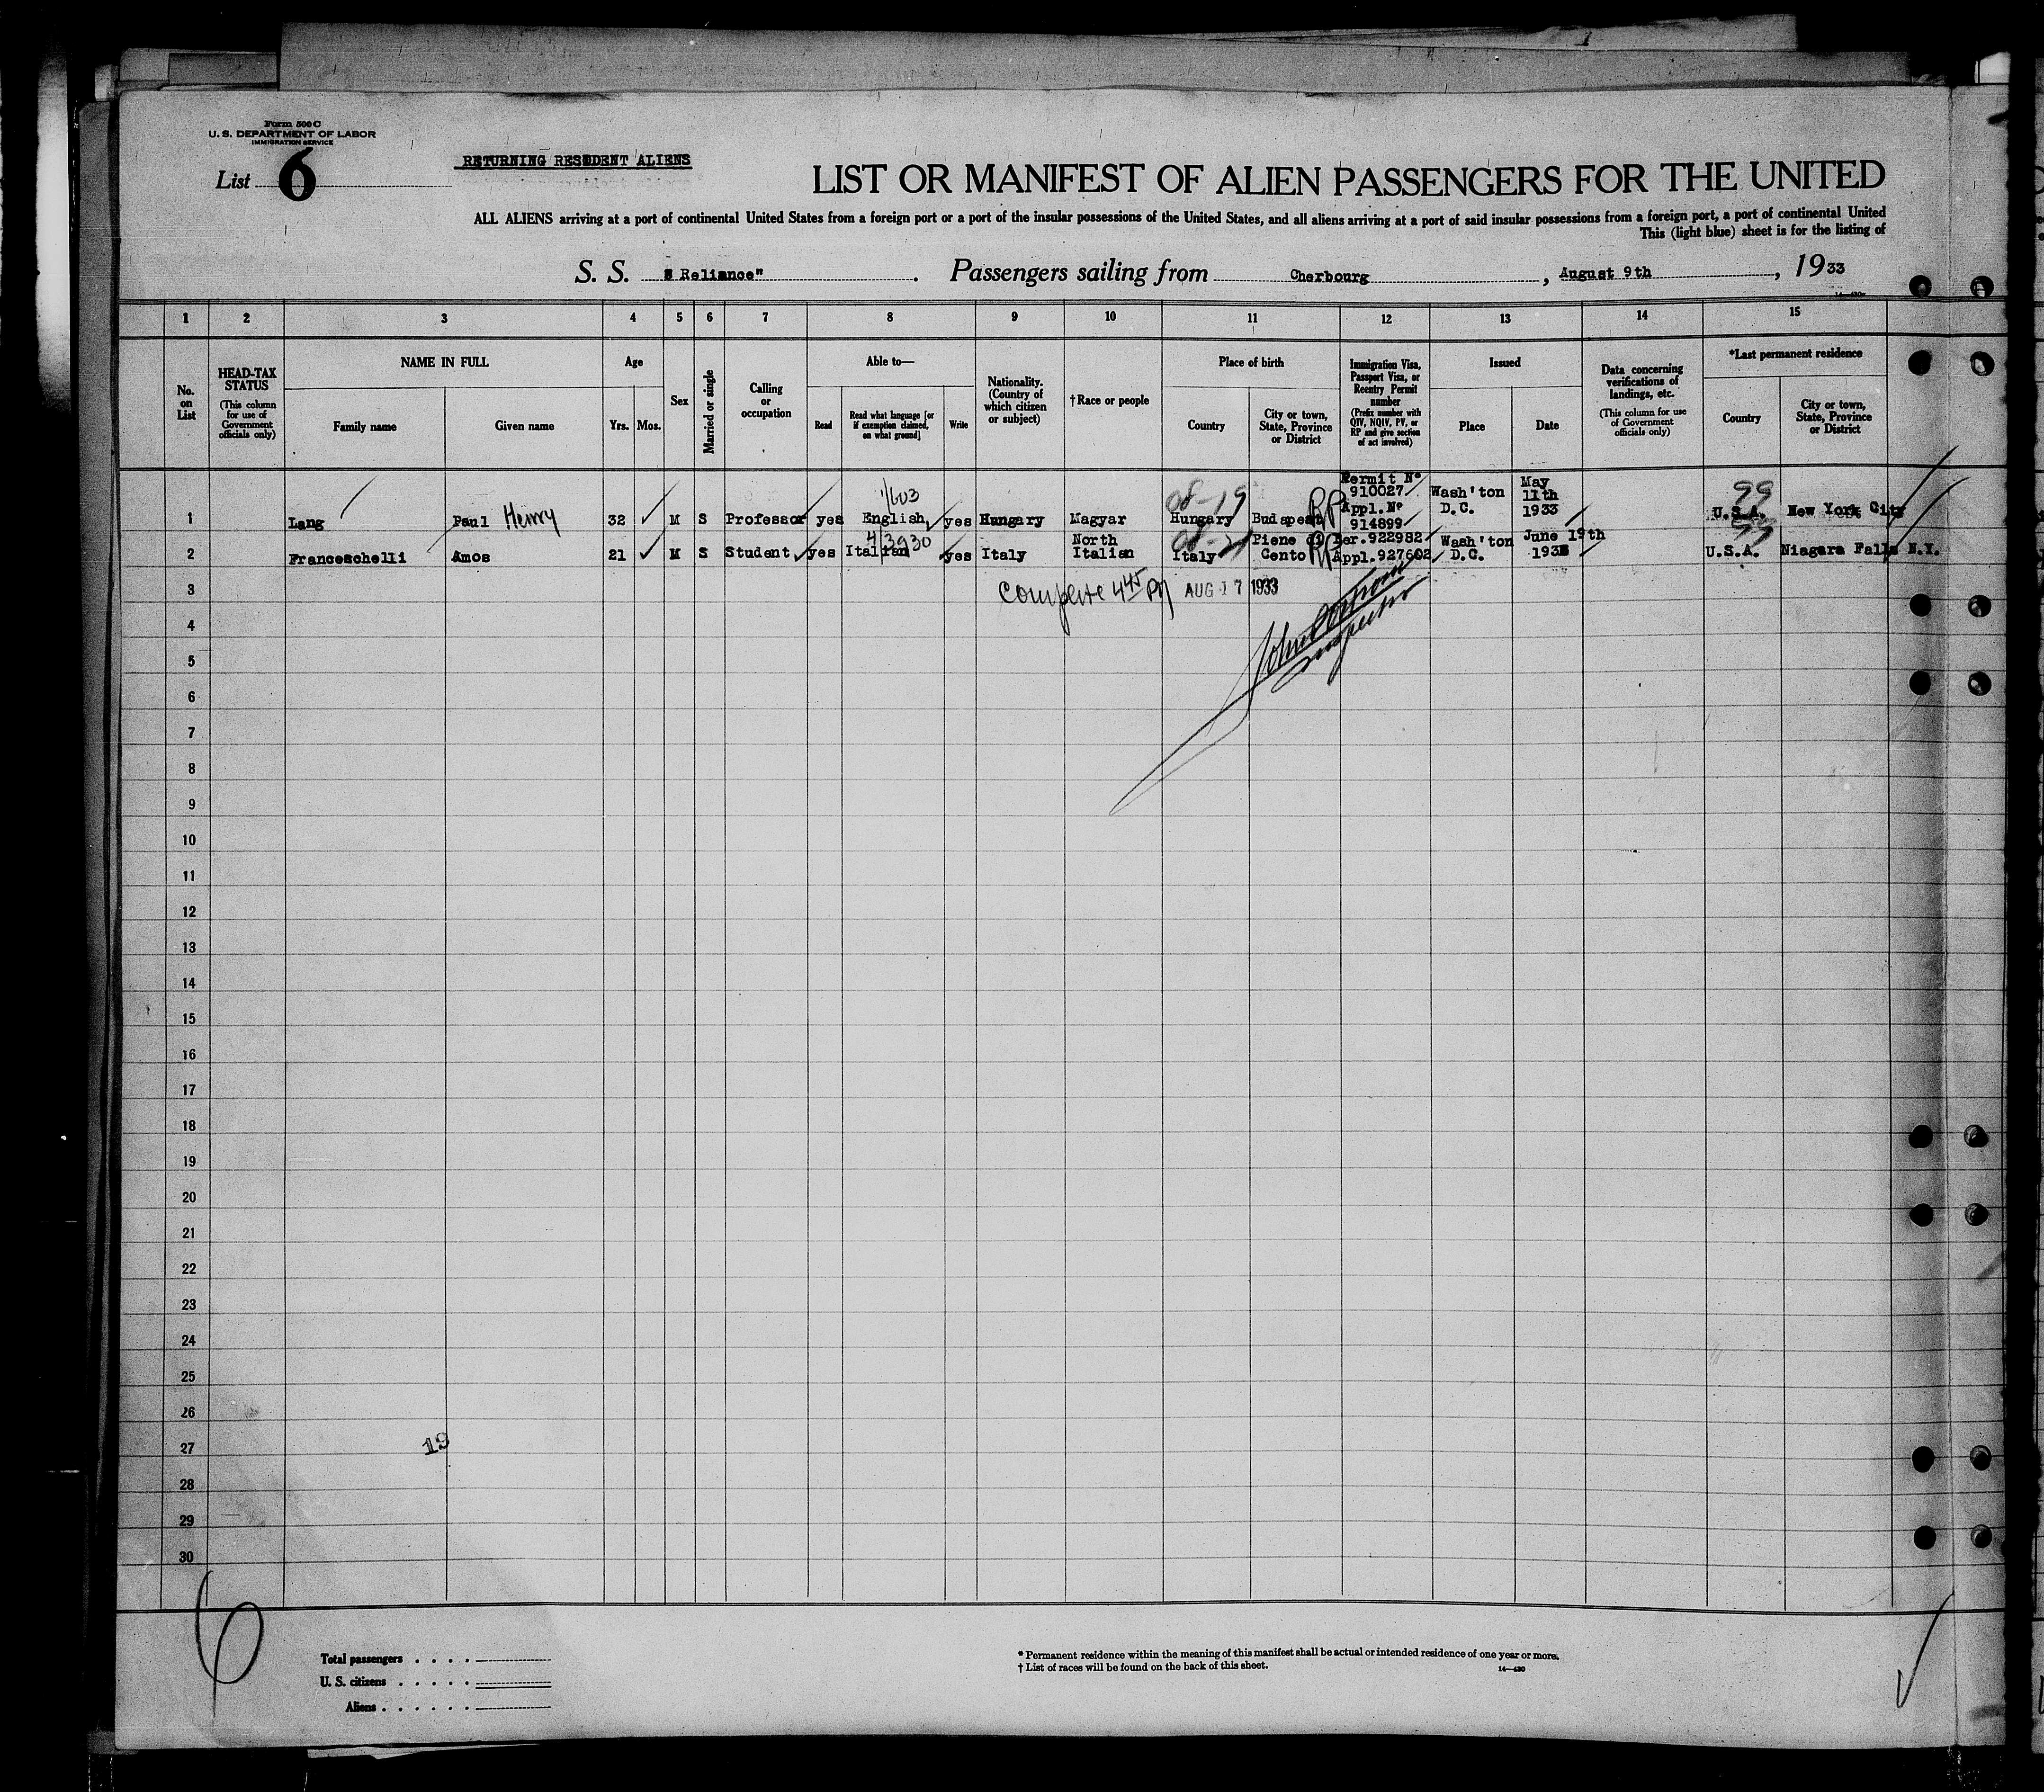 Form 500 C
U. S. DEPARTMENT OF LABOR
IMMIGRATION SERVICE
List 6
RETURNING RESIDENT ALIENS
LIST OR MANIFEST OF ALIEN PASSENGERS FOR THE UNITED
ALL ALIENS arriving at a port of continental United States from a foreign port or a port of the insular possessions of the United States, and all aliens arriving at a port of said insular possessions from a foreign port, a port of continental United
This (light blue) sheet is for the listing of
S. S. "Reliance". Passengers sailing from Cherbourg, August 9th, 1933
1 2 3 4 5 6 7 8 9 10 11 12 13 14 15
No. on List
HEAD-TAX STATUS (This column for use of Government officials only)
NAME IN FULL
Family name Given name
Age
Yrs. Mos.
Sex
Married or single
Calling or occupation
Able to—
Read Read what language [or if exemption claimed, on what ground] Write
Nationality. (Country of which citizen or subject)
†Race or people
Place of birth
Country City or town, State, Province or District
Immigration Visa, Passport Visa, or Reentry Permit number (Prefix number with QIV, NQIV, PV, or RP and give section of act involved)
Issued
Place Date
Data concerning verifications of landings, etc. (This column for use of Government officials only)
*Last permanent residence
Country City or town, State, Province or District
1 Lang Paul Henry 32 M S Professor yes 1/603 English yes Hungary Magyar Hungary Budapest RP Permit No 910027 Appl. No 914899 Wash'ton D.C. May 11th 1933 99 U.S.A. New York City
2 Franceschelli Amos 21 M S Student yes 4/3930 Italian yes Italy North Italian Italy Pieve di Cento RP Per.922982 Appl.927602 Wash'ton D.C. June 19th 1933 U.S.A. Niagara Falls N.Y.
3 Complete 4 45 PM AUG 17 1933
4
Inspector
5
6
7
8
9
10
11
12
13
14
15
16
17
18
19
20
21
22
23
24
25
26
27
19
28
29
30
6
Total passengers
U. S. citizens
Aliens
* Permanent residence within the meaning of this manifest shall be actual or intended residence of one year or more.
† List of races will be found on the back of this sheet.
14—430